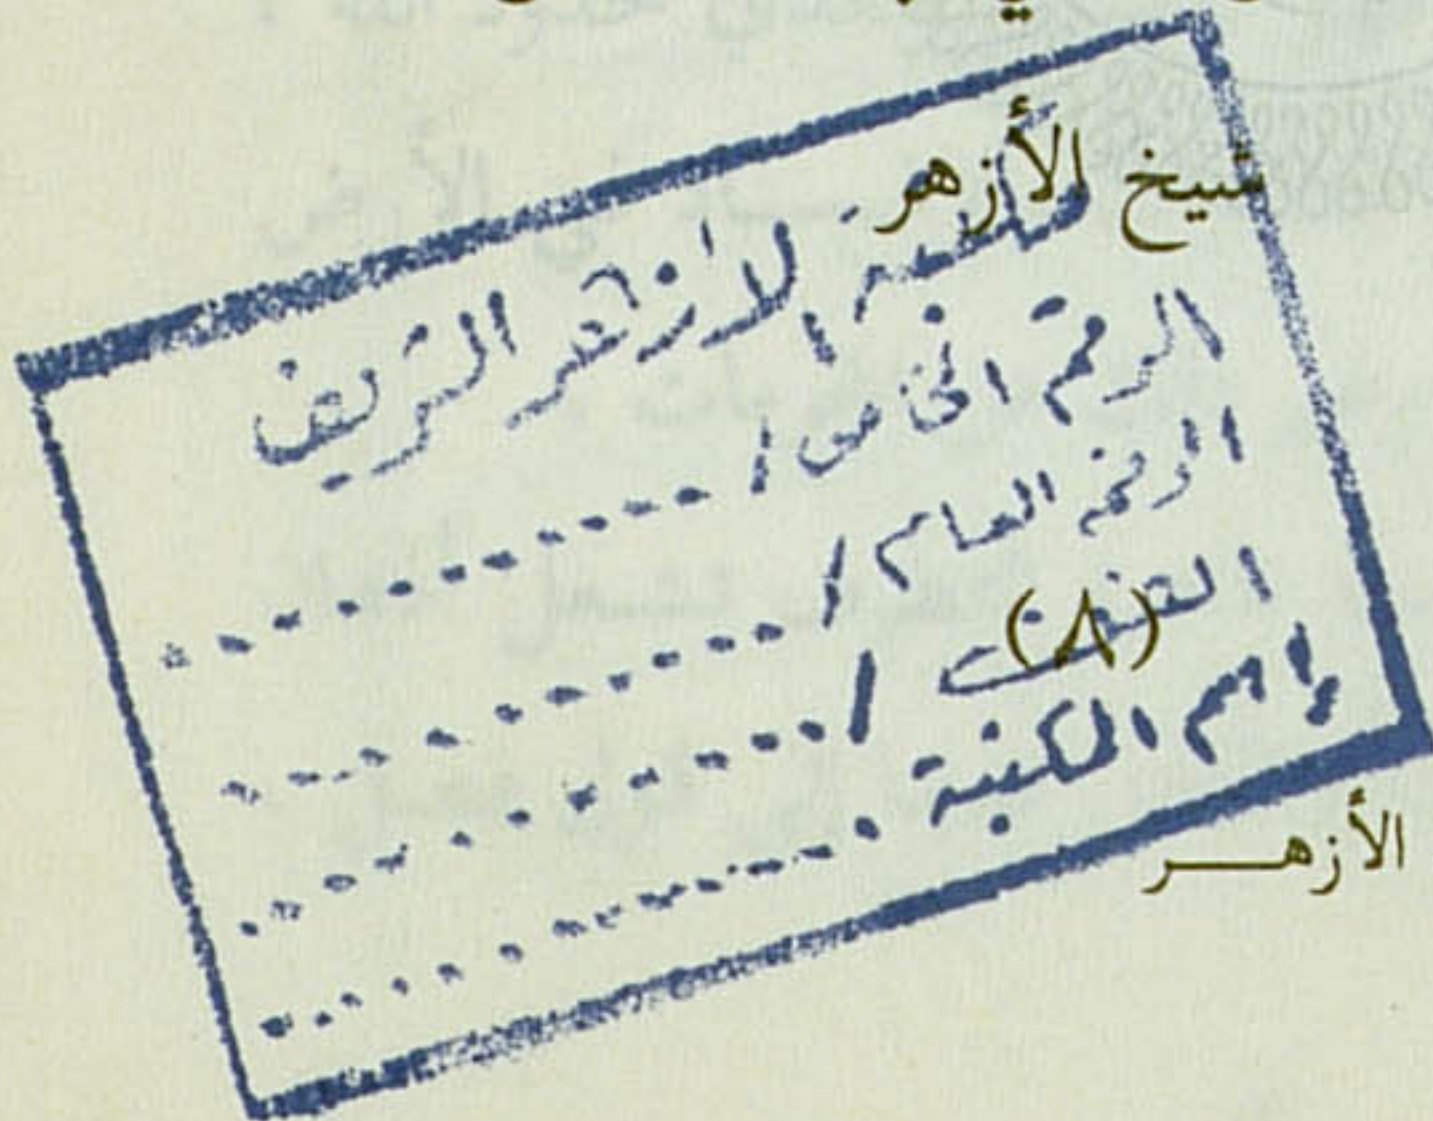 شيخ الأزهر
مكتبة الازهر الشريف
الرقم الخاص /
الرقم العام /
الفن /
(٨)
إسم المكتبة
الأزهـــر